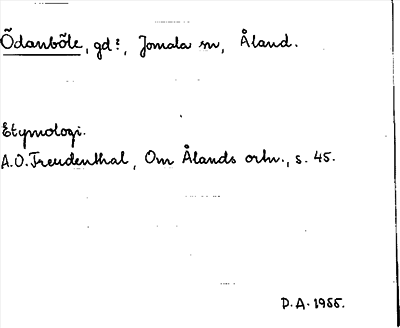 Ödanböle, gd?, Jomala sn, Åland.
Etymologi.
A.O. Freudenthal, Om Ålands ortn., s. 45.
P.A. 1955.